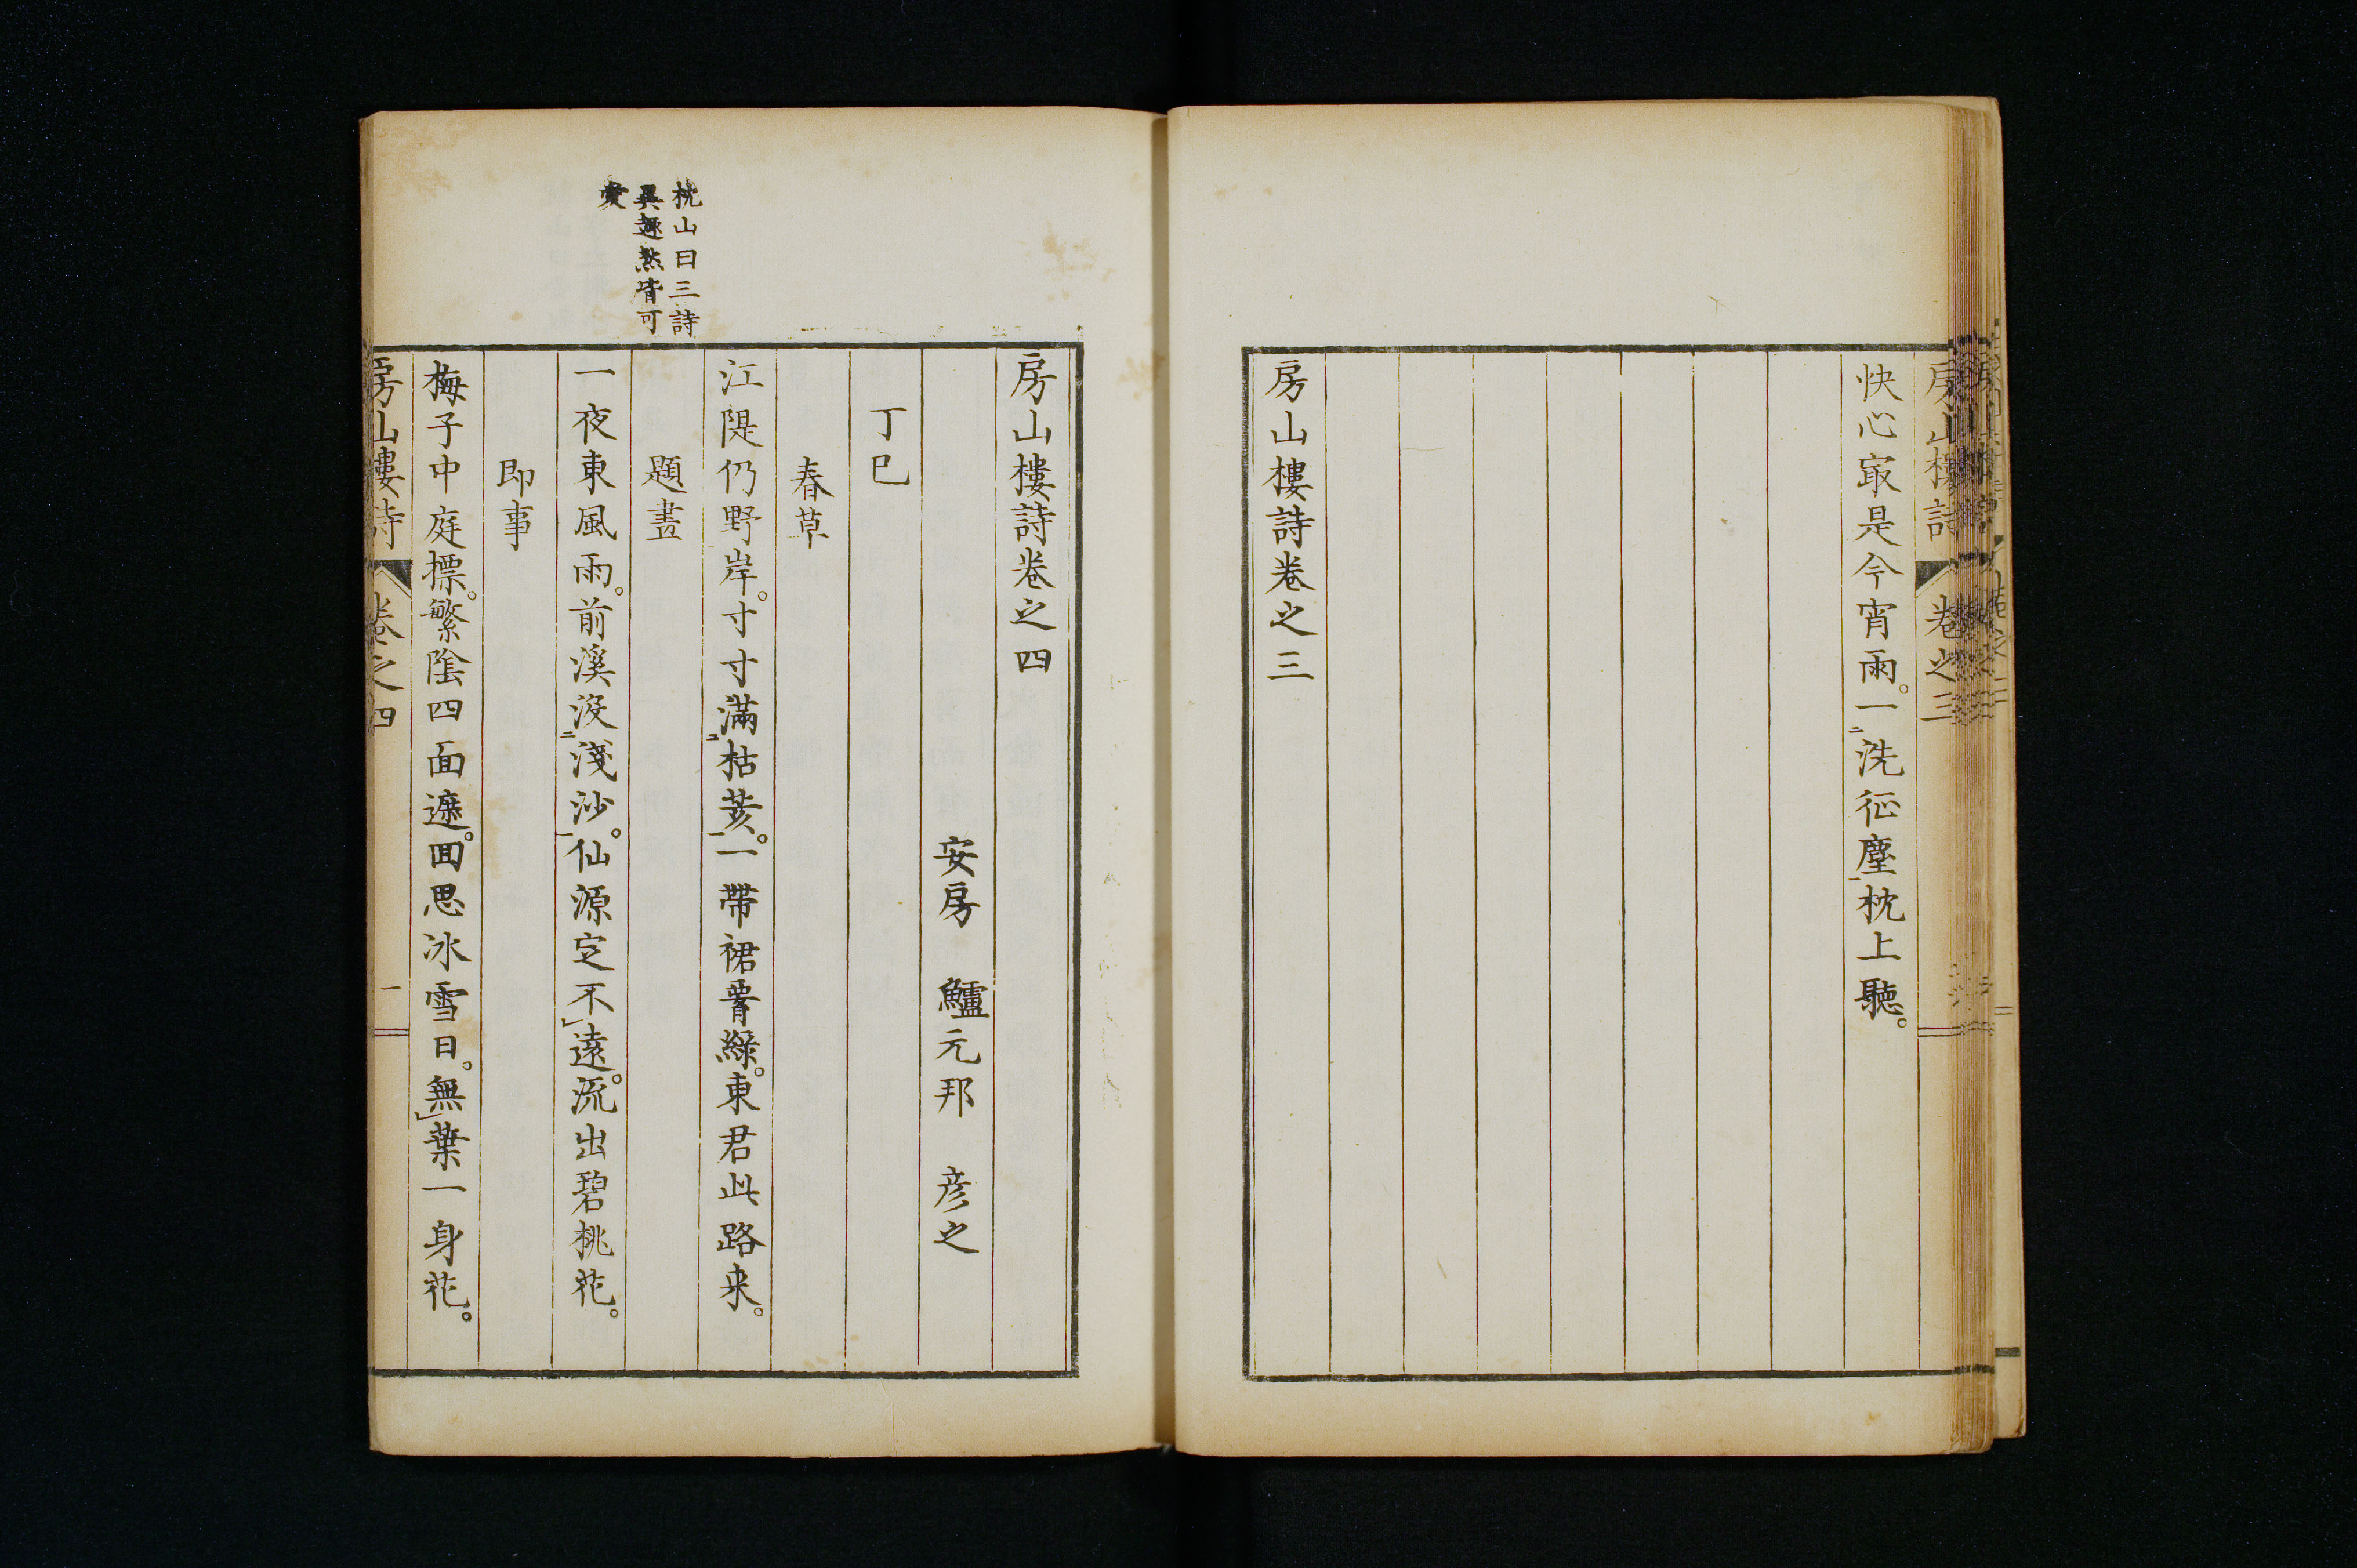 房山樓詩 卷之三
快心㝡是今宵雨。一洗征塵枕上聽。
房山樓詩卷之三
房山樓詩卷之四
安房 鱸元邦 彦之
丁巳
春草
江隄仍野岸。寸寸滿枯荄。一帶裙腰綠。東君此路来。
題畫
一夜東風雨。前溪沒淺沙。仙源定不遠。流出碧桃花。
即事
梅子中庭摽。繁陰四面遮。回思冰雪日。無葉一身花。
枕山曰三詩
異趣然皆可
愛
房山樓詩 卷之四 一